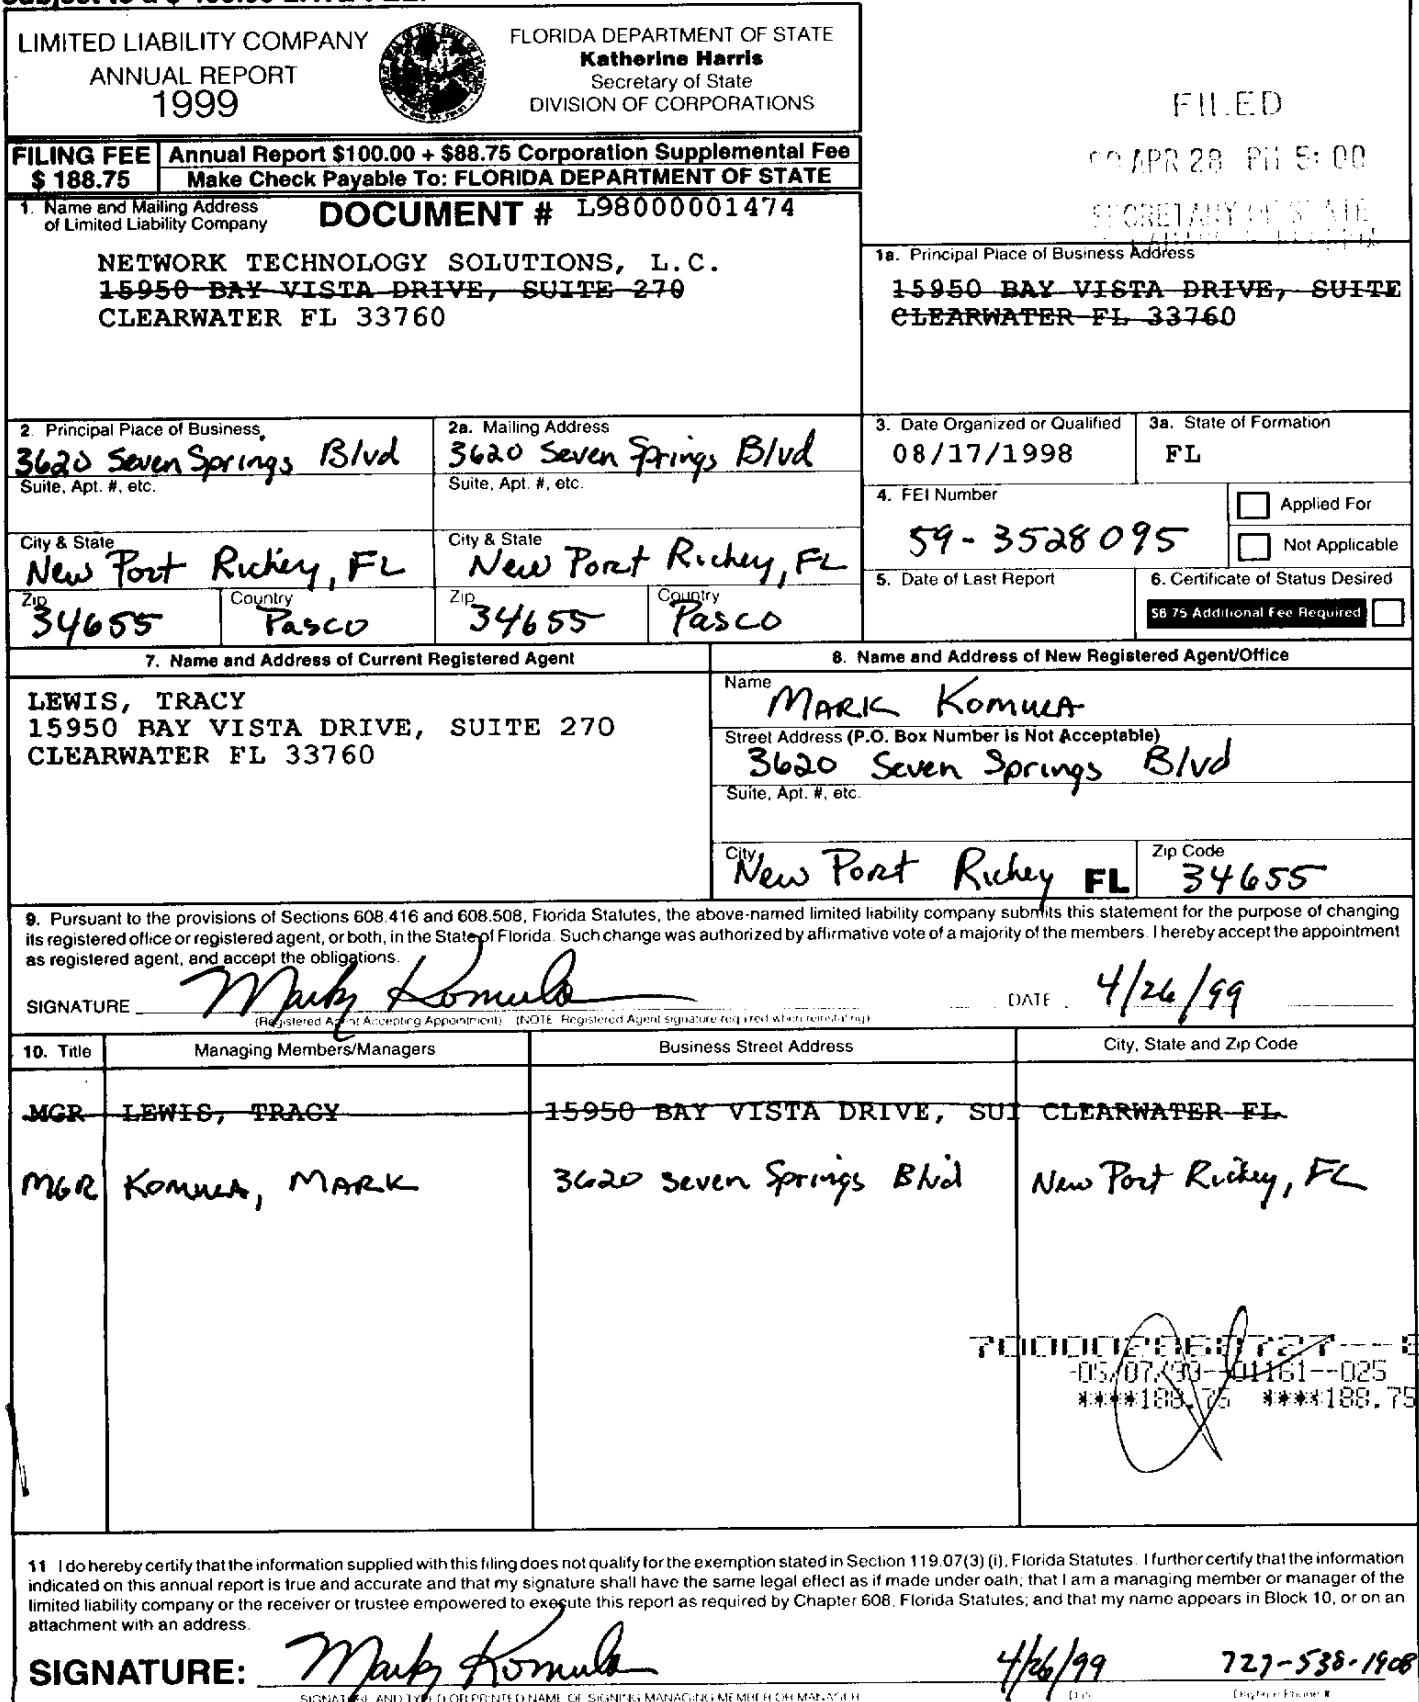 LIMITED LIABILITY COMPANY
ANNUAL REPORT
1999
FLORIDA DEPARTMENT OF STATE
Katherine Harris
Secretary of State
DIVISION OF CORPORATIONS
FILED
APR 28 PM 5:00
SECRETARY OF STATE
FILING FEE
$ 188.75
Annual Report $100.00 + $88.75 Corporation Supplemental Fee
Make Check Payable To: FLORIDA DEPARTMENT OF STATE
1. Name and Mailing Address
of Limited Liability Company
DOCUMENT # L98000001474
NETWORK TECHNOLOGY SOLUTIONS, L.C.
15950 BAY VISTA DRIVE, SUITE 270
CLEARWATER FL 33760
1a. Principal Place of Business Address
15950 BAY VISTA DRIVE, SUITE
CLEARWATER FL 33760
2. Principal Place of Business
3620 Seven Springs Blvd
Suite, Apt. #, etc.
City & State
New Port Richey, FL
Zip
34655
Country
Pasco
2a. Mailing Address
3620 Seven Springs Blvd
Suite, Apt. #, etc.
City & State
New Port Richey, FL
Zip
34655
Country
Pasco
3. Date Organized or Qualified
08/17/1998
3a. State of Formation
FL
4. FEI Number
59-3528095
Applied For
Not Applicable
5. Date of Last Report
6. Certificate of Status Desired
$8.75 Additional Fee Required
7. Name and Address of Current Registered Agent
LEWIS, TRACY
15950 BAY VISTA DRIVE, SUITE 270
CLEARWATER FL 33760
8. Name and Address of New Registered Agent/Office
Name
MARK KOMULA
Street Address (P.O. Box Number is Not Acceptable)
3620 Seven Springs Blvd
Suite, Apt. #, etc.
City
New Port Richey FL
Zip Code
34655
9. Pursuant to the provisions of Sections 608.416 and 608.508, Florida Statutes, the above-named limited liability company submits this statement for the purpose of changing
its registered office or registered agent, or both, in the State of Florida. Such change was authorized by affirmative vote of a majority of the members. I hereby accept the appointment
as registered agent, and accept the obligations.
SIGNATURE Mark Komula DATE 4/26/99
(Registered Agent Accepting Appointment) (NOTE: Registered Agent signature required when reinstating)
10. Title Managing Members/Managers Business Street Address City, State and Zip Code
MGR LEWIS, TRACY 15950 BAY VISTA DRIVE, SUI CLEARWATER FL
MGR KOMULA, MARK 3620 Seven Springs Blvd New Port Richey, FL
-05/07/99--01161--025
****188.75 ****188.75
11 I do hereby certify that the information supplied with this filing does not qualify for the exemption stated in Section 119.07(3) (i), Florida Statutes. I further certify that the information
indicated on this annual report is true and accurate and that my signature shall have the same legal effect as if made under oath; that I am a managing member or manager of the
limited liability company or the receiver or trustee empowered to execute this report as required by Chapter 608, Florida Statutes; and that my name appears in Block 10, or on an
attachment with an address.
SIGNATURE: Mark Komula 4/26/99 727-538-1908
SIGNATURE AND TYPED OR PRINTED NAME OF SIGNING MANAGING MEMBER OR MANAGER Date Daytime Phone #